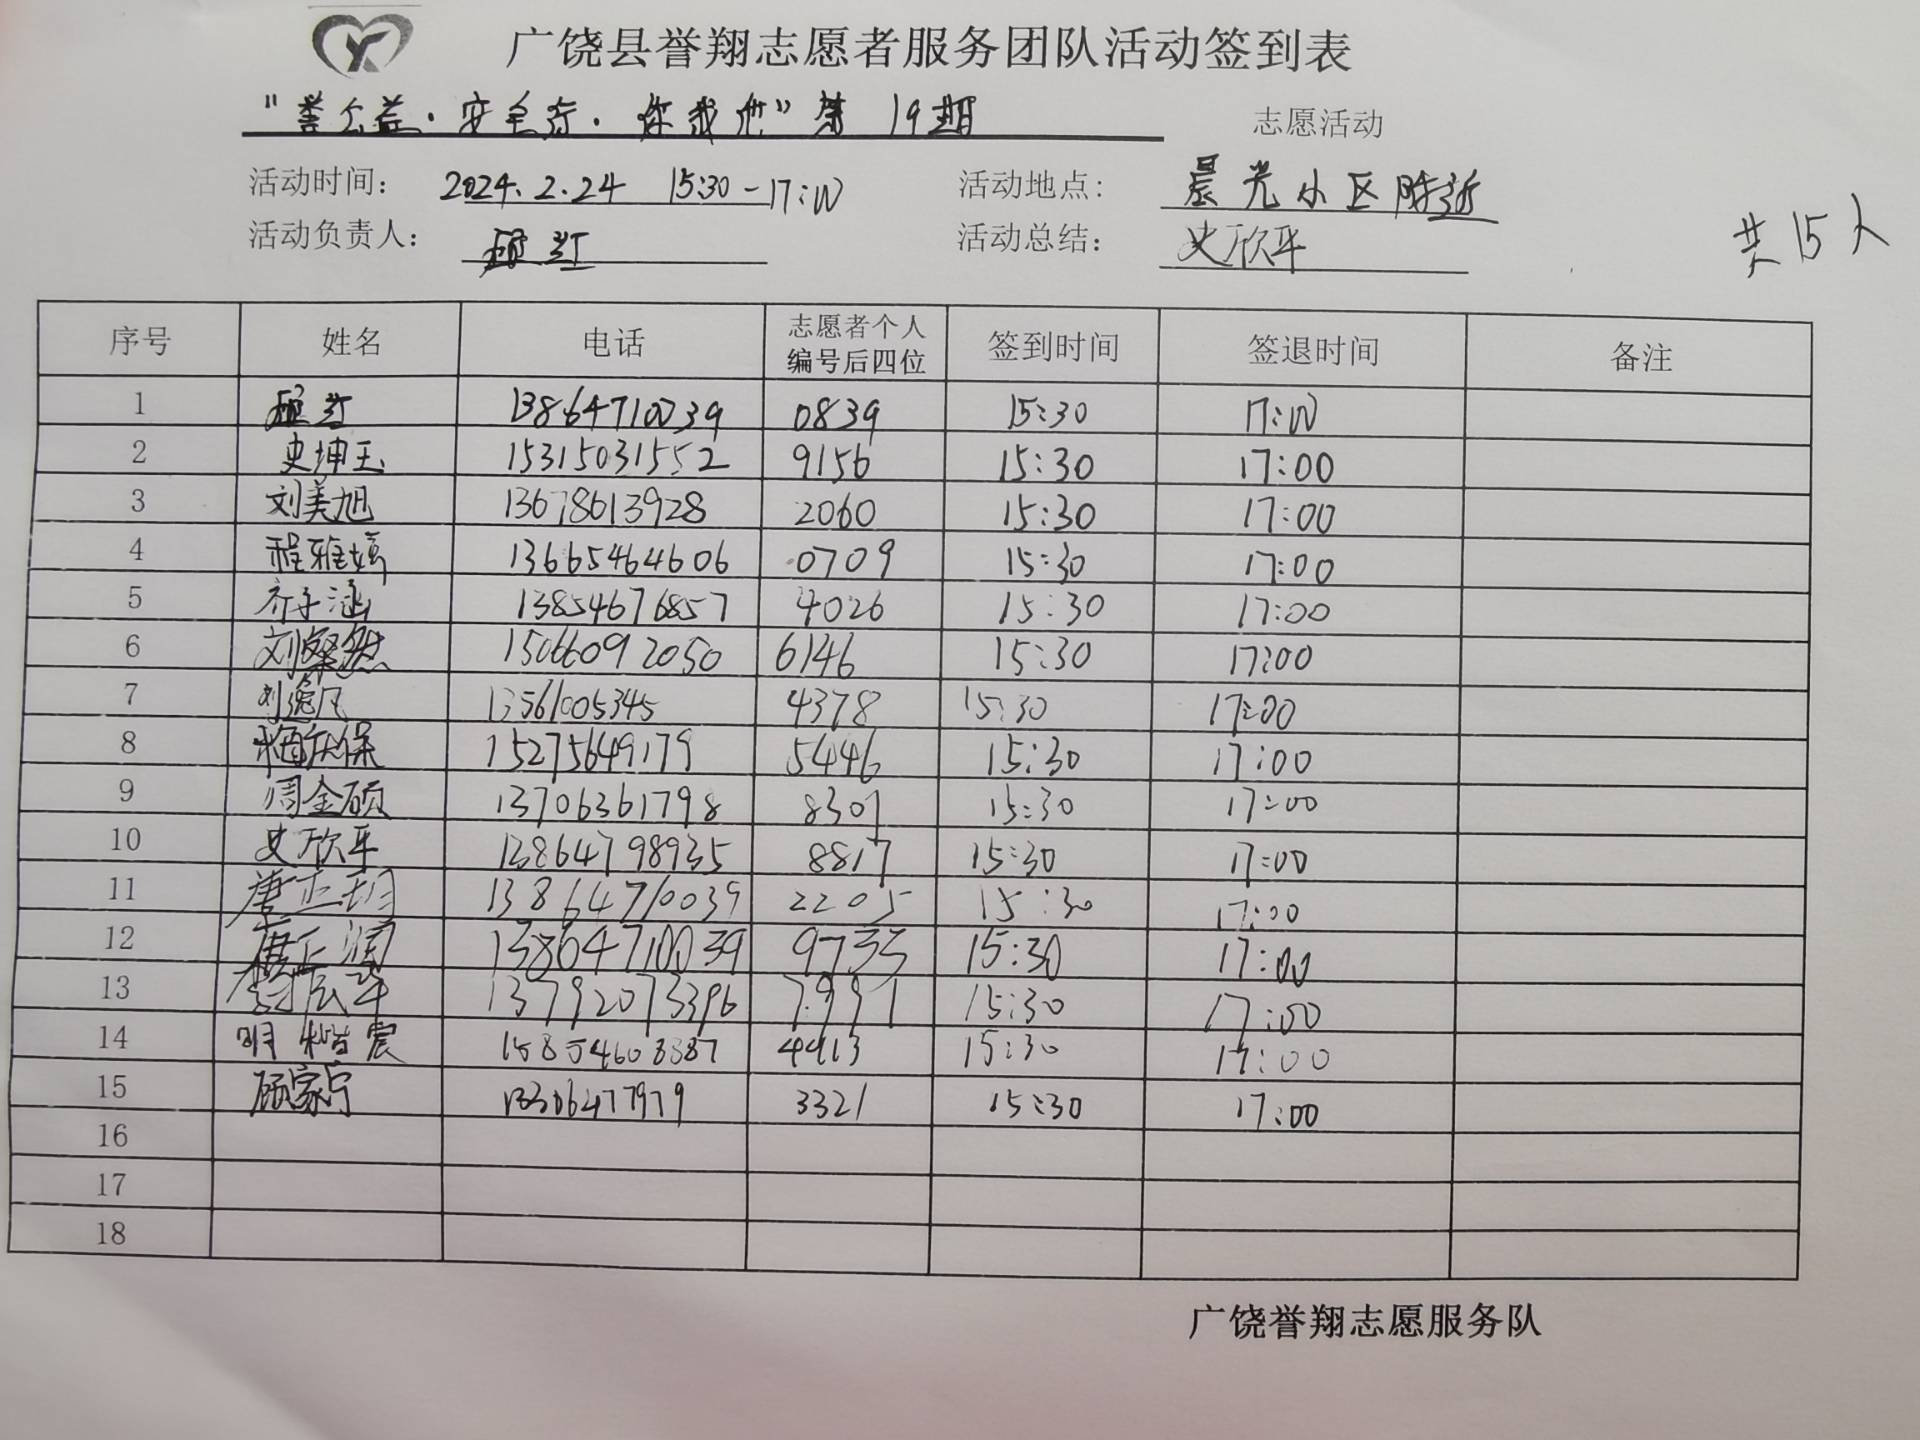 广饶县誉翔志愿者服务团队活动签到表
"誉公益·安全行·你我他"第 19期 志愿活动
活动时间： 2024.2.24 15:30-17:00 活动地点： 晨光小区附近
活动负责人： 顾红 活动总结： 史欣平
共15人
序号 姓名 电话 志愿者个人编号后四位 签到时间 签退时间 备注
1 顾红 13864710039 0839 15:30 17:00
2 史坤玉 15315031552 9156 15:30 17:00
3 刘美旭 13678613928 2060 15:30 17:00
4 程雅嫣 13665464606 0709 15:30 17:00
5 齐子涵 13854676857 4026 15:30 17:00
6 刘燊然 15066092050 6146 15:30 17:00
7 刘逸凡 13561005345 4378 15:30 17:00
8 15275649179 5446 15:30 17:00
9 周金硕 13706361798 8307 15:30 17:00
10 史欣平 13864798935 8817 15:30 17:00
11 唐正 13864710039 2205 15:30 17:00
12 唐正润 13864710039 9733 15:30 17:00
13 13792073396 7991 15:30 17:00
14 明楷宸 4913 15:30 17:00
15 顾家宁 13306477979 3321 15:30 17:00
16
17
18
广饶誉翔志愿服务队